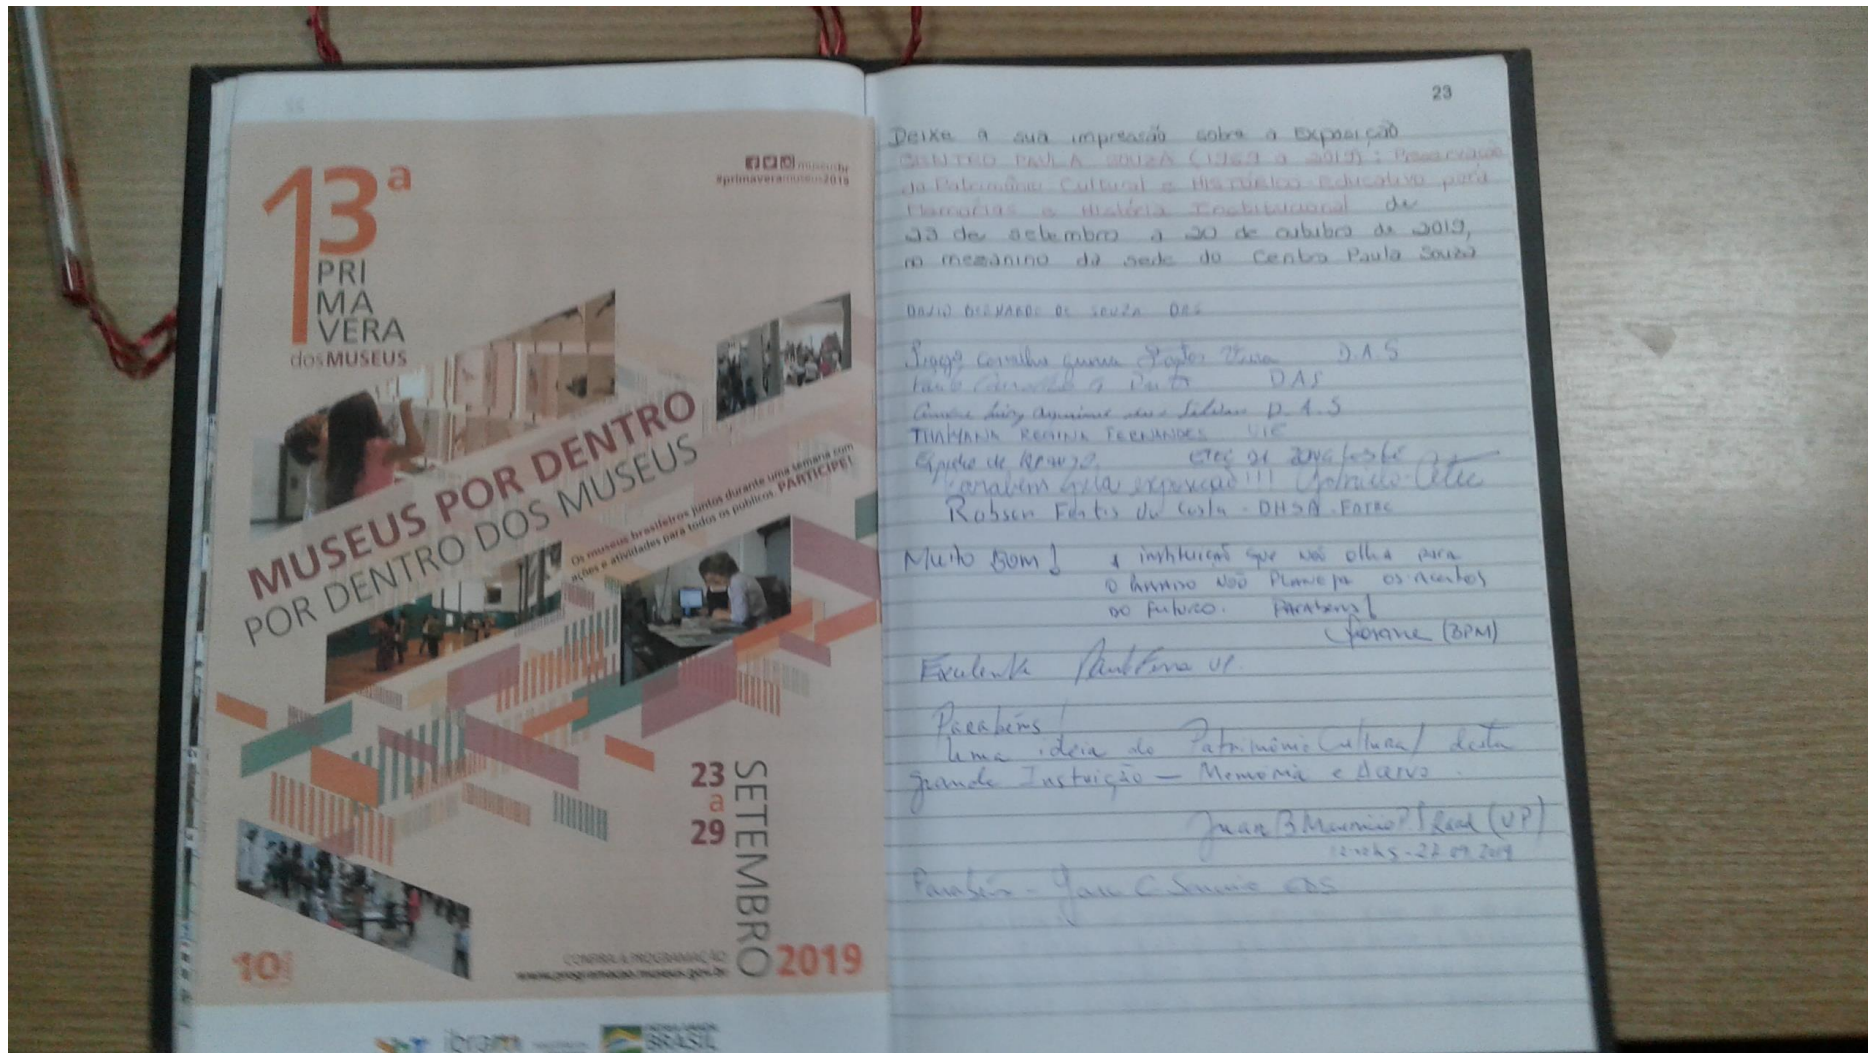 13ª
PRI
MA
VERA
dosMUSEUS
museubr
#primaveramuseus2019
MUSEUS POR DENTRO
POR DENTRO DOS MUSEUS
Os museus brasileiros juntos durante uma semana com
ações e atividades para todos os públicos. PARTICIPE!
23
a
29
SETEMBRO
2019
10
CONFIRA A PROGRAMAÇÃO
www.programacao.museus.gov.br
ibram
BRASIL
23
Deixe a sua impressão sobre a Exposição
CENTRO PAULA SOUZA (1969 a 2019): Preservação
do Patrimônio Cultural e Histórico Educativo para
Memórias e História Institucional de
23 de setembro a 20 de outubro de 2019,
no mezanino da sede do Centro Paula Souza
DAVID BERNARDO DE SOUZA DAS
Carvalho D.A.S
DAS
D.A.S
THAYANA REGINA FERNANDES
de Etec da Zona Leste
Parabém pela exposição!!! Cetec
Robson da Costa - DHSA - Fatec
Muito Bom! A instituição que não olha para
o passado não planeja os acertos
do futuro. Parabens!
(BPM)
Excelente UP.
Parabéns!
Uma ideia do Patrimônio Cultural desta
grande Instuição — Memória e Acervo.
Juan B (UP)
27.09.2019
Parabéns - C